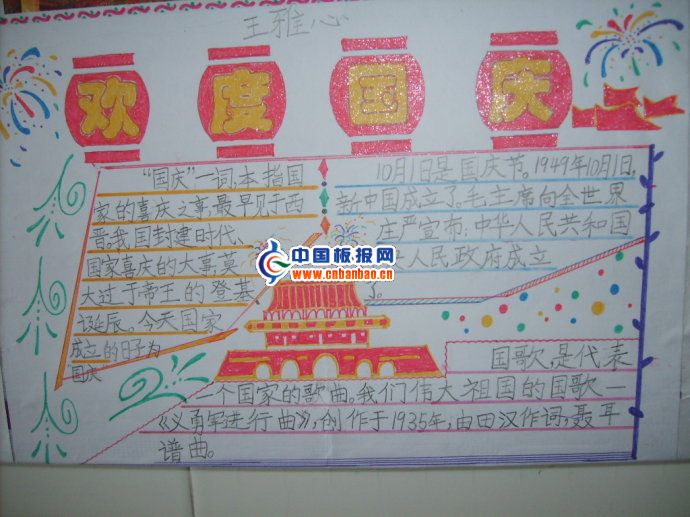 王雅心
欢度国庆
"国庆"一词,本指国
家的喜庆之事,最早见于西
晋。我国封建时代、
国家喜庆的大事,莫
大过于帝王的登基
诞辰。今天国家
成立的日子为
"国庆"
10月1日是国庆节。1949年10月1日,
新中国成立了。毛主席向全世界
庄严宣布:中华人民共和国
人民政府成立
了。
中国板报网
www.cnbanbao.cn
国歌是代表
一个国家的歌曲。我们伟大祖国的国歌一
《义勇军进行曲》,创作于1935年,由田汉作词,聂耳
谱曲。